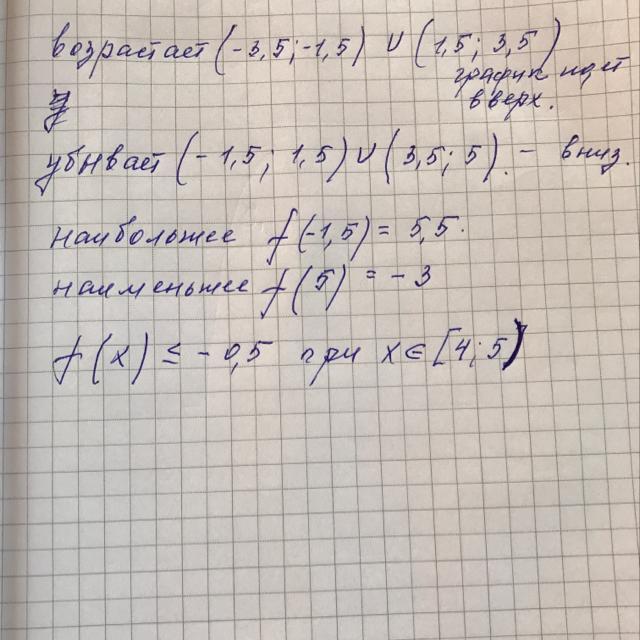 возрастает (-3,5; -1,5) ∪ (1,5; 3,5)
график идет
вверх.
убывает (-1,5; 1,5) ∪ (3,5; 5). - вниз.
наибольшее f(-1,5) = 5,5.
наименьшее f(5) = -3
f(x) ≤ -0,5 при x ∈ [4; 5)